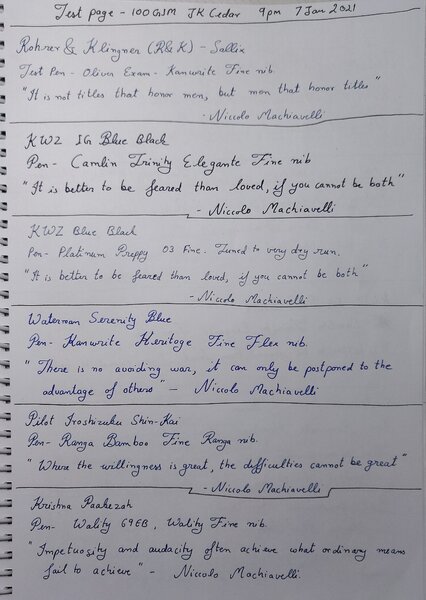 Test page - 100GSM JK Cedar 9pm 7 Jan 2021
Rohrer & Klingner (R&K) - Salix
Test Pen - Oliver Exam - Kanwrite Fine nib.
"It is not titles that honor men, but men that honor titles"
- Niccolo Machiavelli
KWZ IG Blue Black
Pen - Camlin Trinity Elegante Fine nib
"It is better to be feared than loved, if you cannot be both"
- Niccolo Machiavelli
KWZ Blue Black
Pen - Platinum Preppy 03 Fine. Tuned to very dry run.
"It is better to be feared than loved, if you cannot be both"
- Niccolo Machiavelli
Waterman Serenity Blue
Pen - Kanwrite Heritage Fine Flex nib.
"There is no avoiding war, it can only be postponed to the
advantage of others" - Niccolo Machiavelli
Pilot Iroshizuku Shin-Kai
Pen - Ranga Bamboo Fine Ranga nib.
"Where the willingness is great, the difficulties cannot be great"
- Niccolo Machiavelli
Krishna Paakezah
Pen - Wality 69EB, Wality Fine nib.
"Impetuosity and audacity often achieve what ordinary means
fail to achieve" - Niccolo Machiavelli.